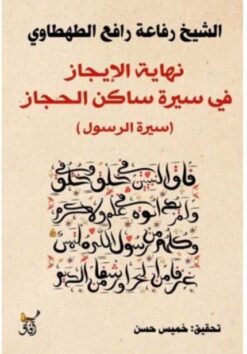 الشيخ رفاعة رافع الطهطاوي
نهاية الإيجاز
في سيرة ساكن الحجاز
(سيرة الرسول)
فاق النبيين في خلق وفي خلق
ولم يدانوه في علم ولا كرم
وكلهم من رسول الله ملتمس
غرفا من البحر أو رشفا من الديم
آفاق
تحقيق: خميس حسن